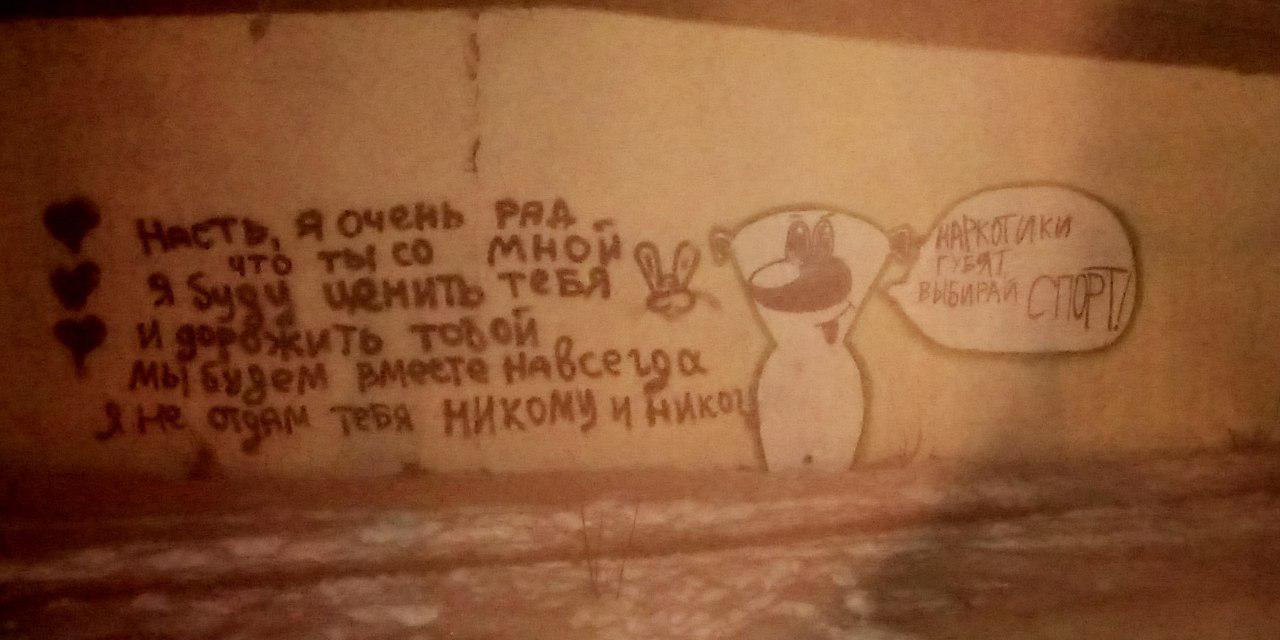 Насть, я очень рад
что ты со мной
я буду ценить тебя
и дорожить тобой
мы будем вместе навсегда
я не отдам тебя никому и никог
НАРКОТИКИ
ГУБЯТ
ВЫБИРАЙ СПОРТ!